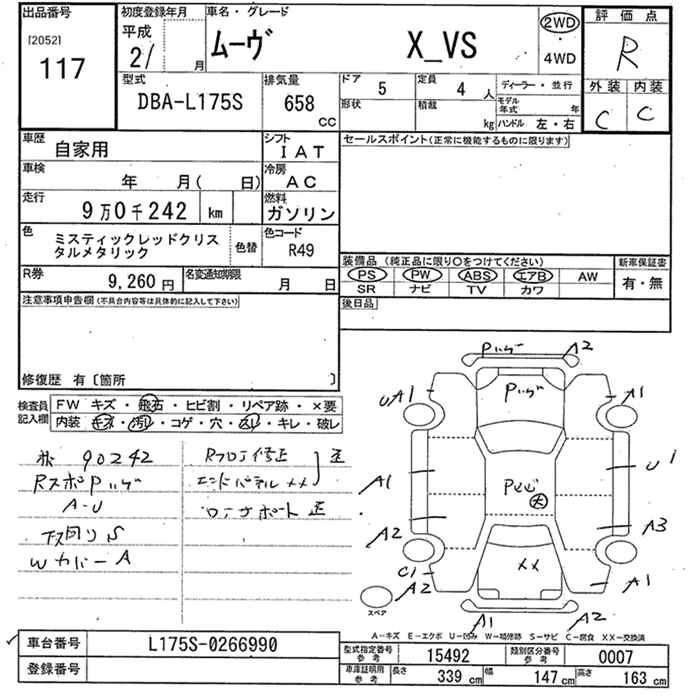 出品番号
[2052]
117
初度登録年月
平成
21/ 月
車名・グレード
ムーヴ X_VS
2WD
4WD
評価点
R
外装 内装
C C
型式
DBA-L175S
排気量
658 CC
ドア 5
形状
定員 4 人
積載 kg
ディーラー・並行
モデル年式 年
ハンドル 左・右
車歴
自家用
シフト
IAT
車検
年 月( 日)
冷房
AC
走行
9万0千242 km
燃料
ガソリン
色
ミスティックレッドクリスタルメタリック
色替
色コード
R49
R券
9,260 円
名変通知期限
月 日
セールスポイント(正常に機能するものに限ります)
装備品(純正品に限り○をつけてください)
PS PW ABS エアB AW
SR ナビ TV カワ
新車保証書
有・無
後日品
注意事項申告欄(不具合内容等は具体的に記入して下さい)
修復歴 有〔箇所 〕
検査員記入欄
FW キズ・飛石・ヒビ割・リペア跡・×要
内装 キズ・汚レ・コゲ・穴・スレ・キレ・破レ
90242
RスポPハゲ
A-U
下回りS
WカバーA
Rフロア修正
エンドパネル××
コアサポート 歪
歪
Pハゲ A2
Pハゲ
UA1
A1
A1
U1
A2
A3
C1
A2
××
A1
A1
A2
スペア
A-キズ E-エクボ U-凹み W-補修跡 S-サビ C-腐食 XX-交換済
車台番号
L175S-0266990
登録番号
型式指定番号 参考
15492
類別区分番号 参考
0007
車庫証明用 参考
長さ 339 cm
幅 147 cm
高さ 163 cm